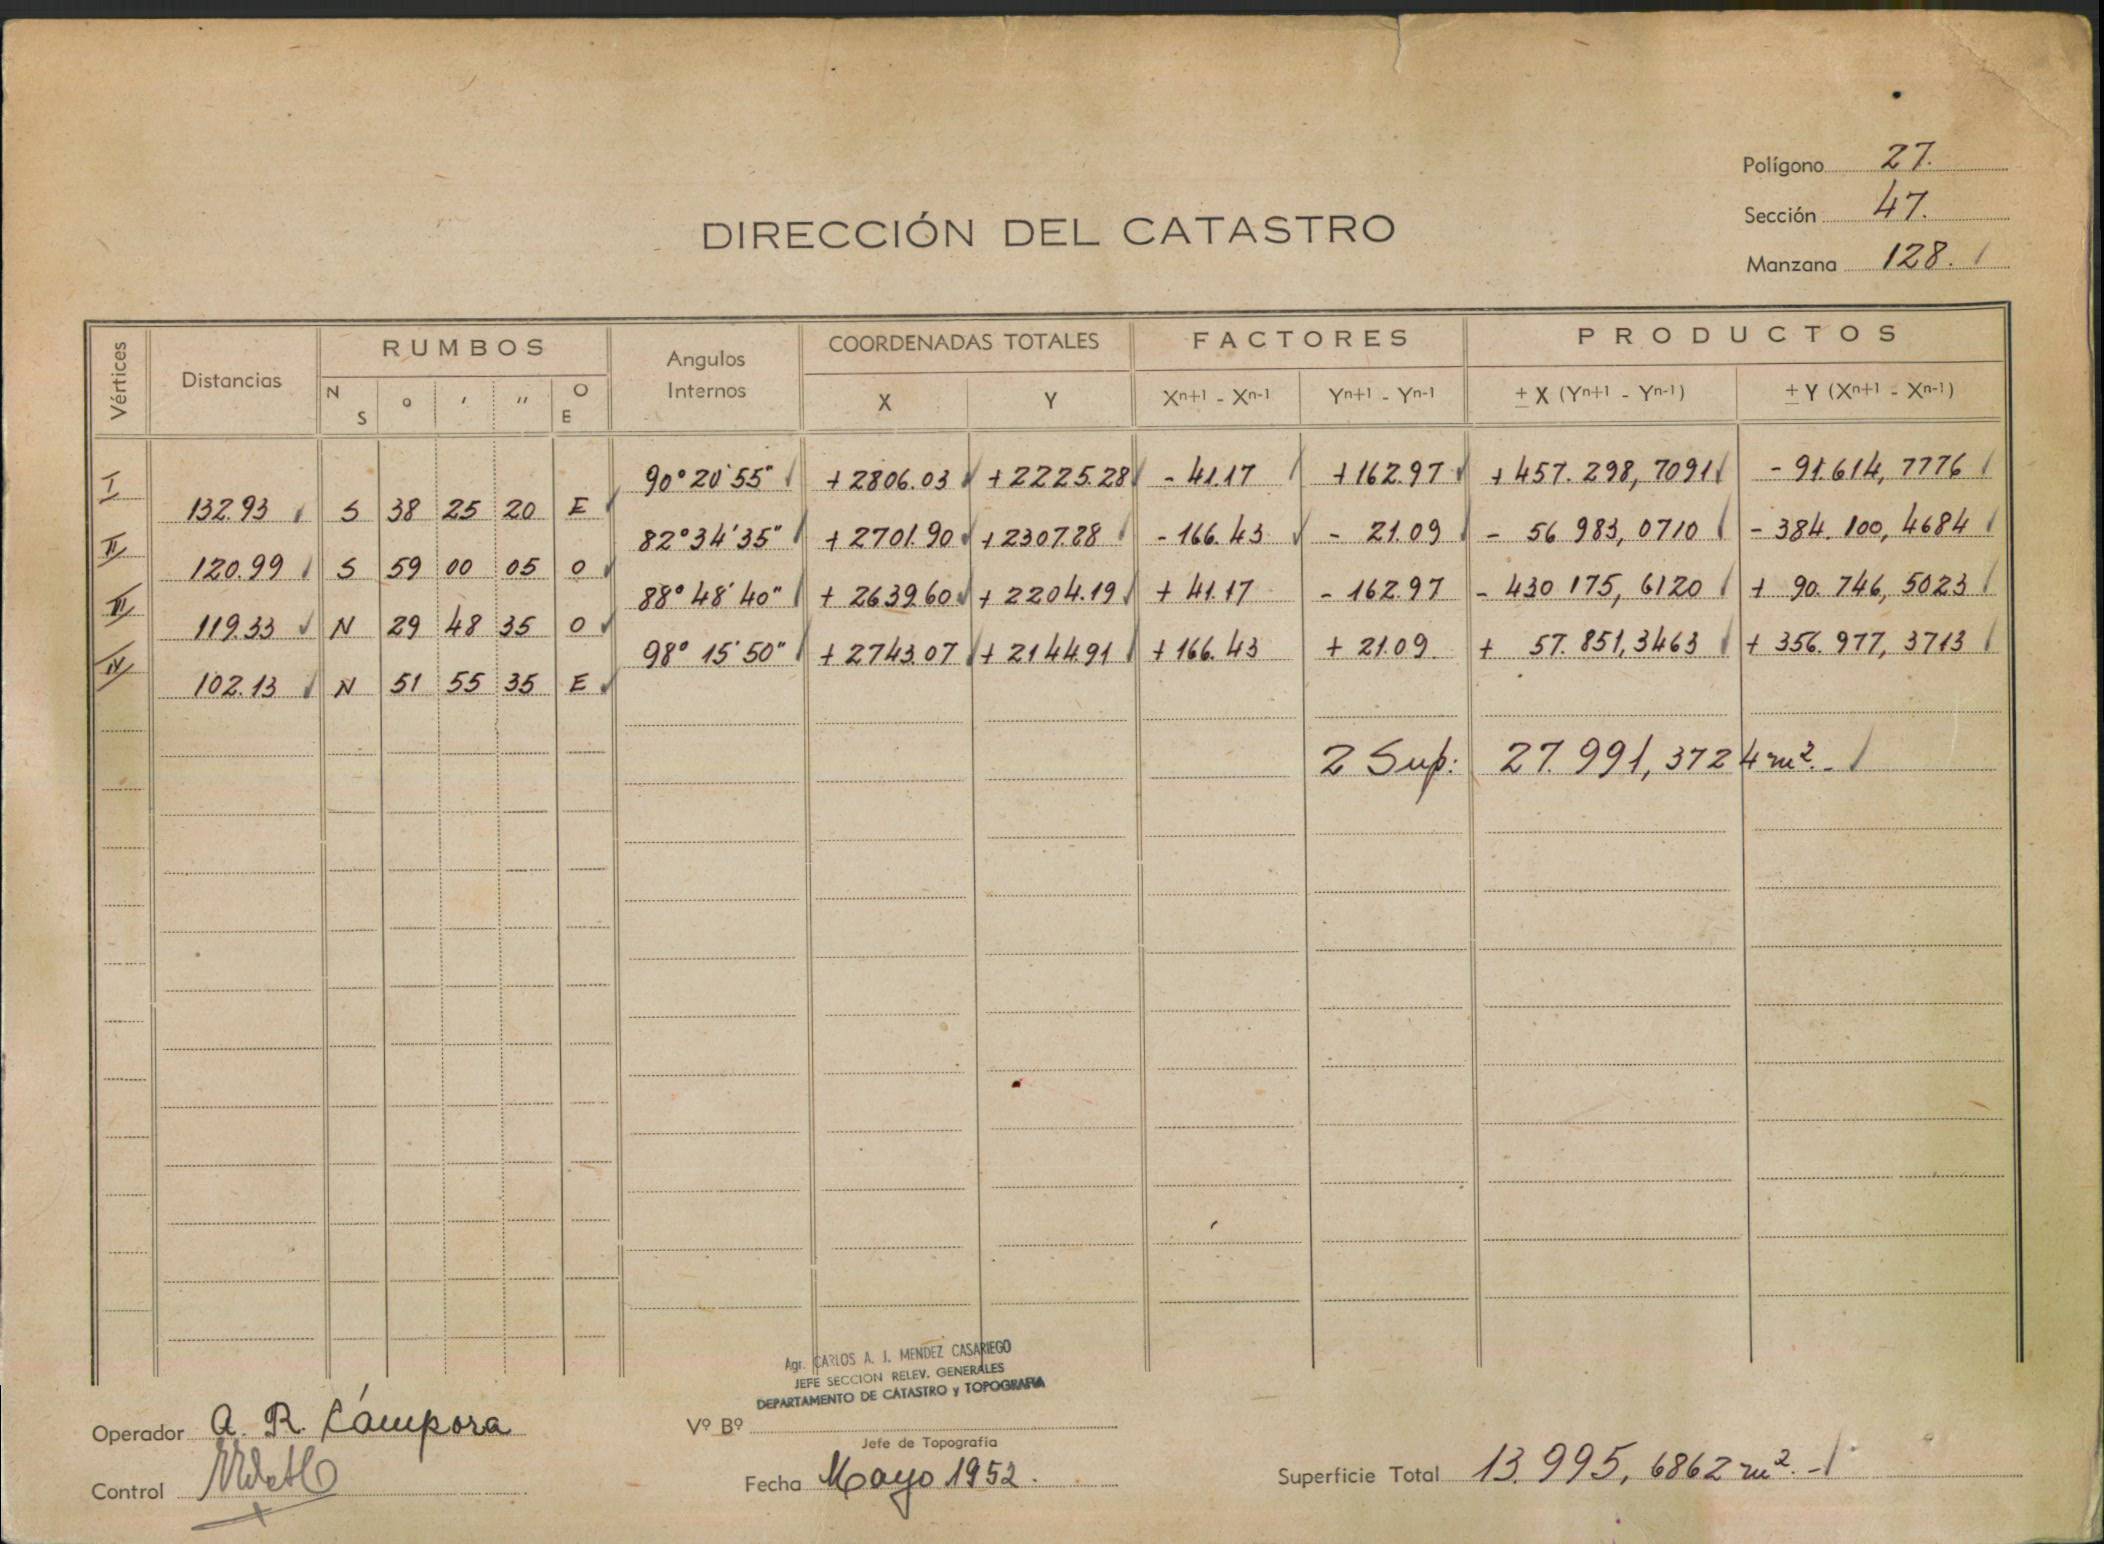 Polígono 27.
Sección 47.
Manzana 128.
DIRECCIÓN DEL CATASTRO
Vértices Distancias RUMBOS Angulos Internos COORDENADAS TOTALES FACTORES PRODUCTOS
N S ° ' '' O E X Y Xn+1 - Xn-1 Yn+1 - Yn-1 ± X (Yn+1 - Yn-1) ± Y (Xn+1 - Xn-1)
I 90° 20' 55" +2806.03 +2225.28 - 41.17 +162.97 +457.298,7091 - 91.614,7776
132.93 S 38 25 20 E
II 82° 34' 35" +2701.90 +2307.28 - 166.43 - 21.09 - 56 983,0710 - 384.100,4684
120.99 S 59 00 05 O
III 88° 48' 40" + 2639.60 + 2204.19 + 41.17 - 162.97 - 430 175,6120 + 90.746,5023
119.33 N 29 48 35 O
IV 98° 15' 50" + 2743.07 + 2144.91 + 166.43 + 21.09. + 57.851,3463 + 356.977,3713
102.13 N 51 55 35 E
2 Sup: 27.991,3724 m².-
Agr. CARLOS A. J. MENDEZ CASARIEGO
JEFE SECCION RELEV. GENERALES
DEPARTAMENTO DE CATASTRO y TOPOGRAFIA
Operador A. R. Cámpora
Vº Bº
Jefe de Topografía
Control
Fecha Mayo 1952.
Superficie Total 13.995,6862 m².-